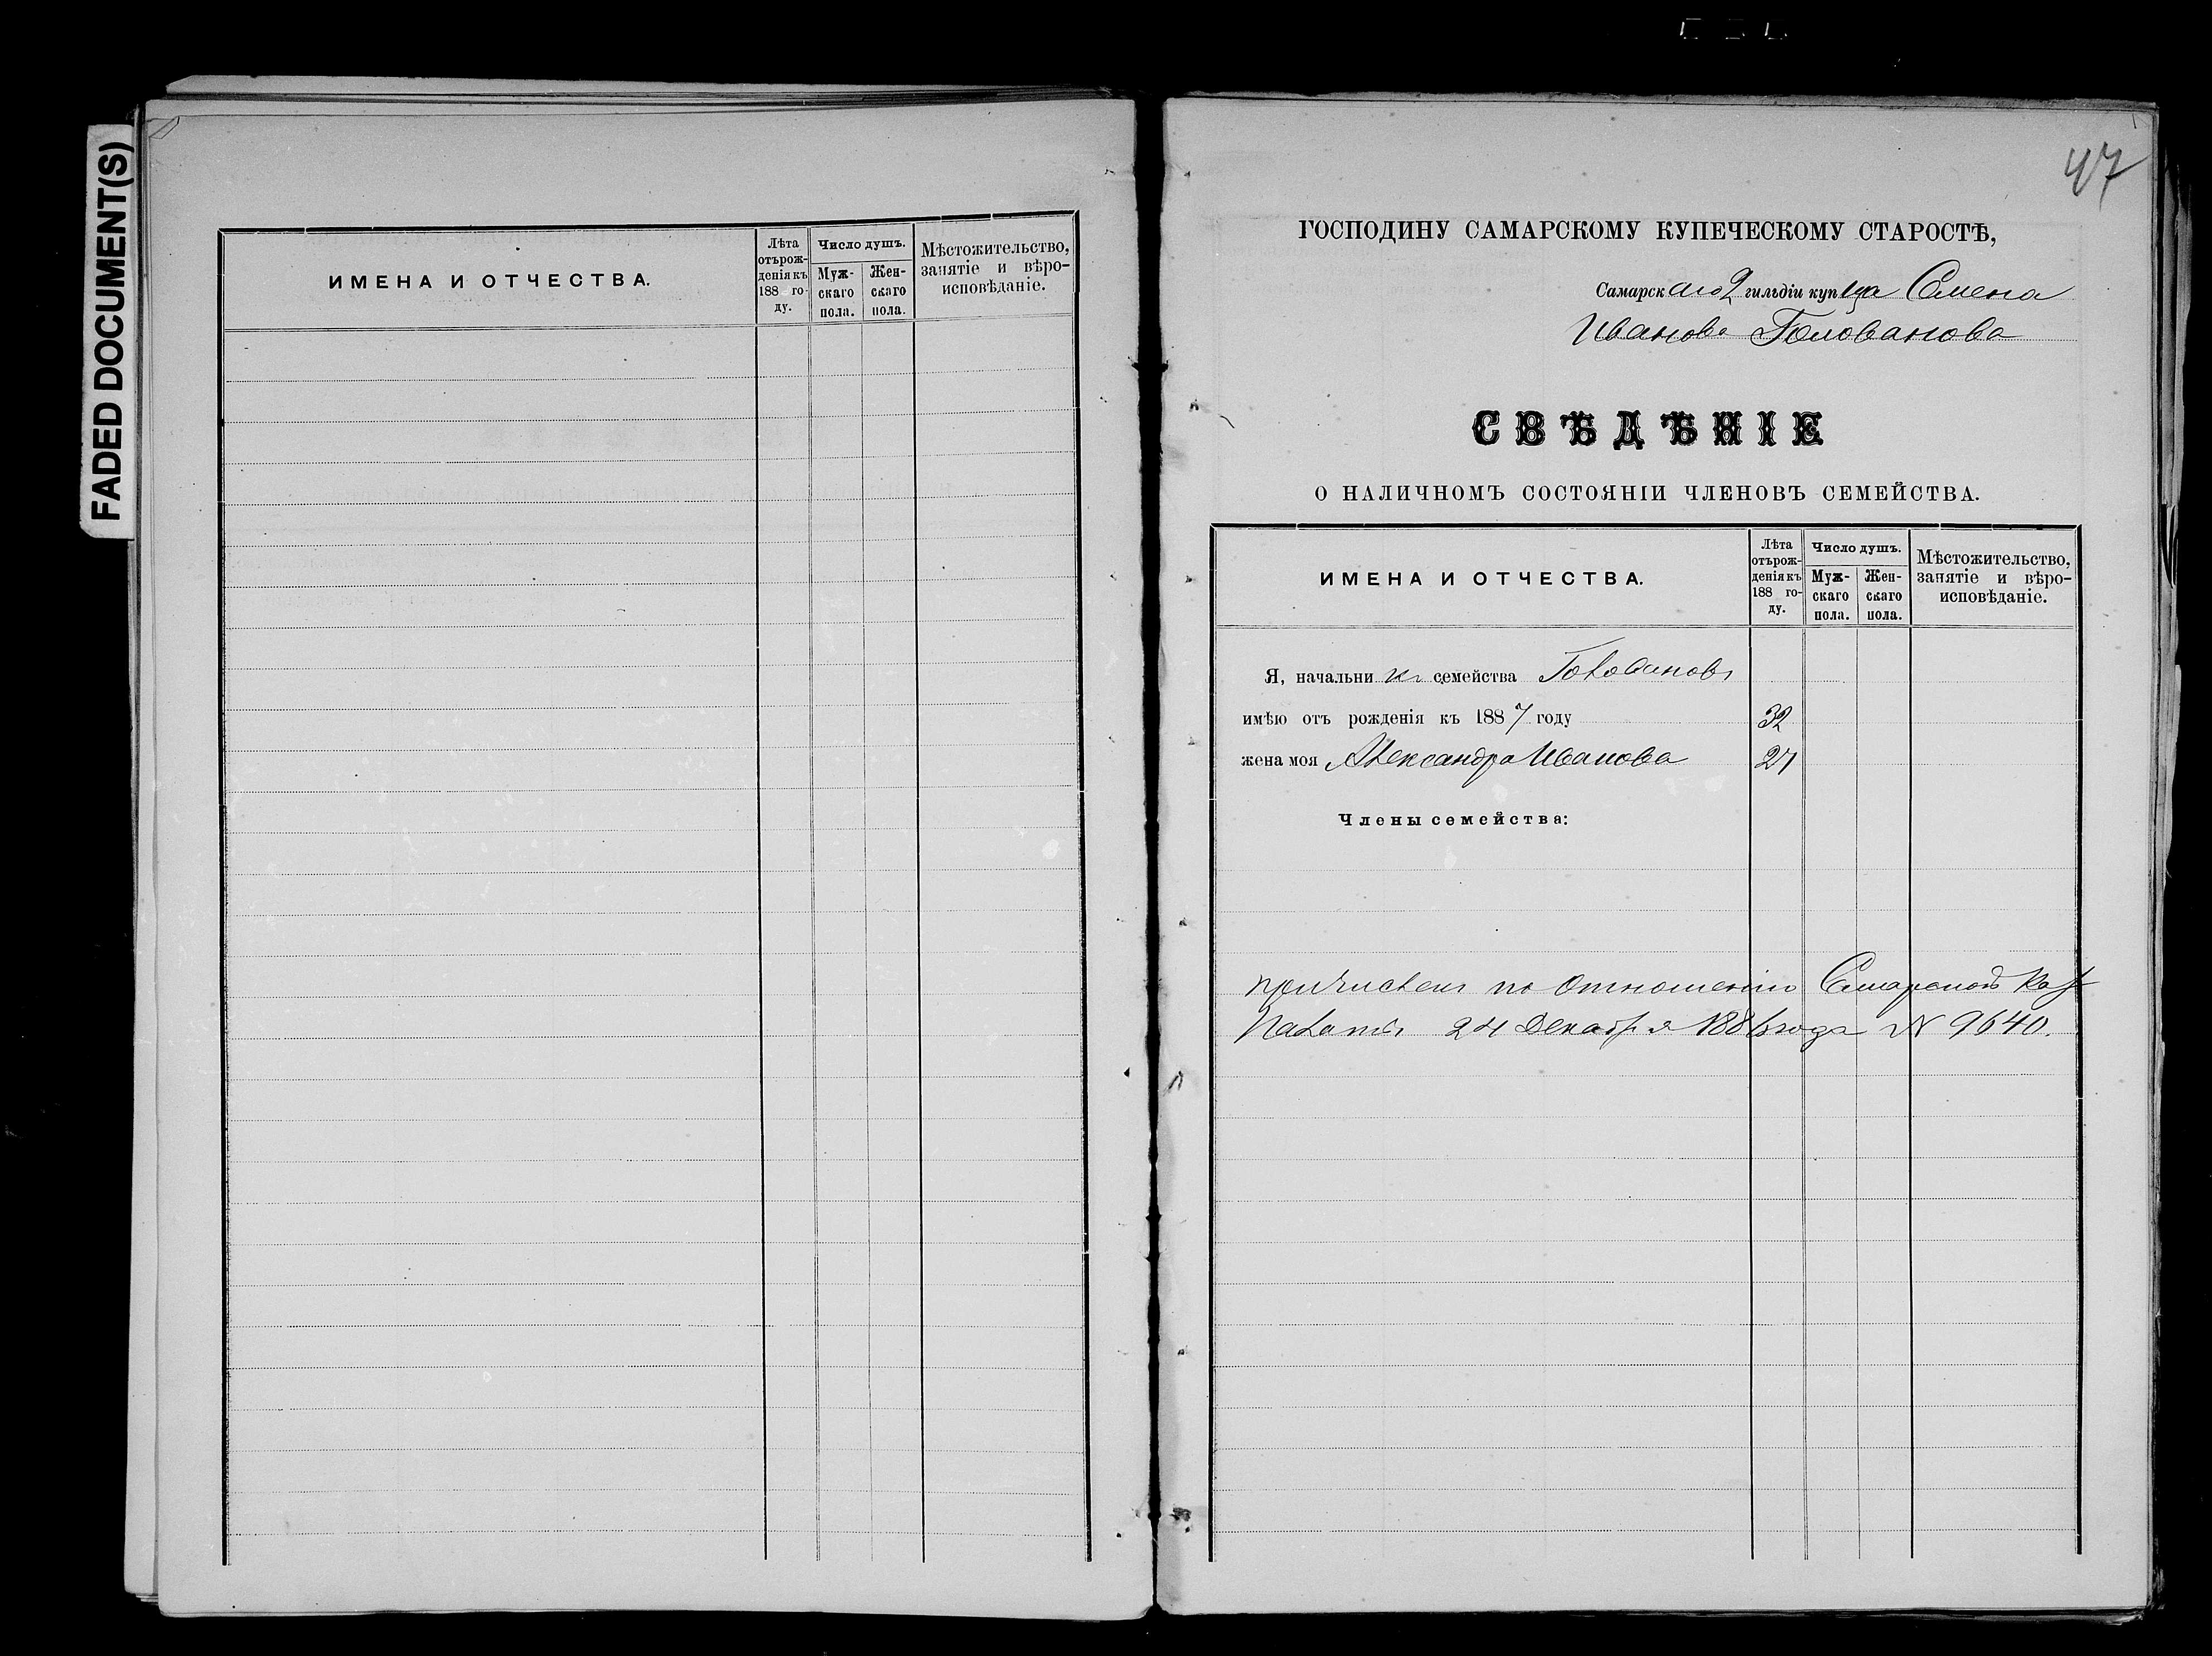 FADED DOCUMENT(S)
ИМЕНА И ОТЧЕСТВА.
Лѣта
отъ рож-
денія къ
188 го-
ду.
Число душъ.
Муж-
скаго
пола.
Жен-
скаго
пола.
Мѣстожительство,
занятіе и вѣро-
исповѣданіе.
47
ГОСПОДИНУ САМАРСКОМУ КУПЕЧЕСКОМУ СТАРОСТѢ,
Самарскаго 2 гильдіи купца Семена
Иванова Голованова
СВѢДѢНІЕ
О НАЛИЧНОМЪ СОСТОЯНІИ ЧЛЕНОВЪ СЕМЕЙСТВА.
ИМЕНА И ОТЧЕСТВА.
Лѣта
отъ рож-
денія къ
188 го-
ду.
Число душъ.
Муж-
скаго
пола.
Жен-
скаго
пола.
Мѣстожительство,
занятіе и вѣро-
исповѣданіе.
Я, начальникъ семейства Головановъ
имѣю отъ рожденія къ 1887 году 32
жена моя Александра Иванова 27
Члены семейства:
причисленъ по отношенію Самарской Каз
Палаты 24 Декабря 1886 года № 9640.